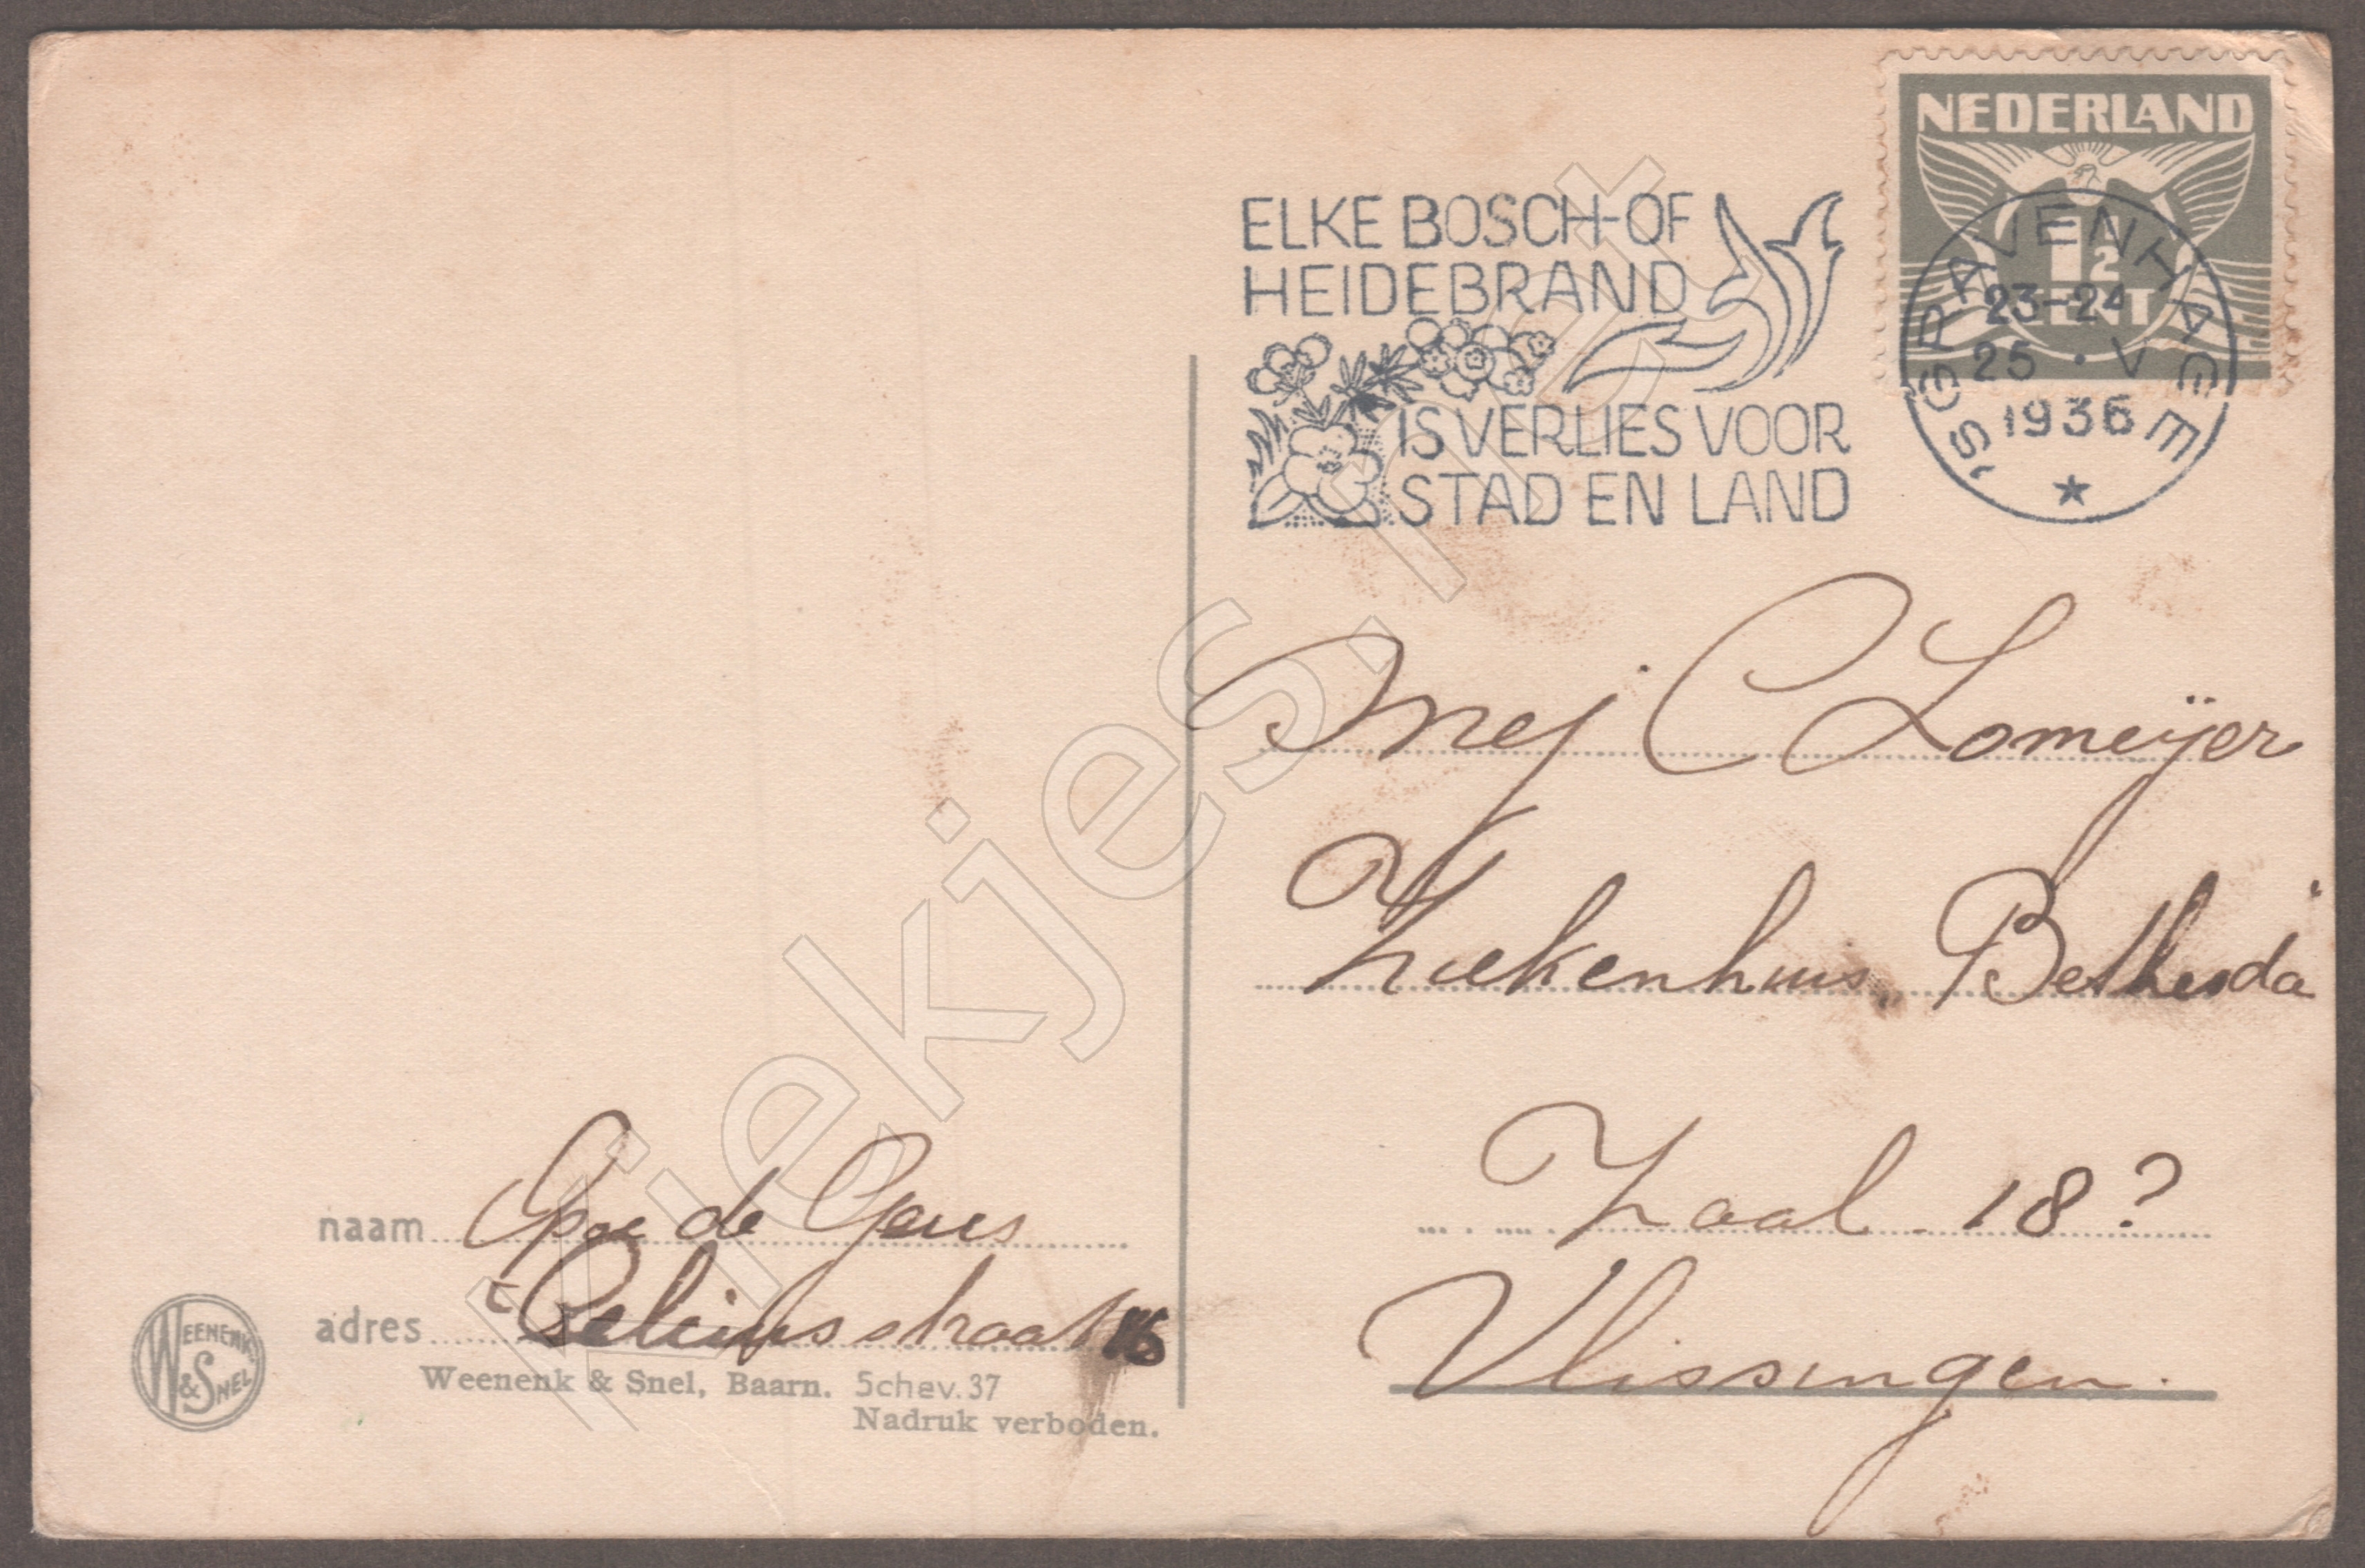 NEDERLAND
1½
CENT
ELKE BOSCH-OF
HEIDEBRAND
IS VERLIES VOOR
STAD EN LAND
'SGRAVENHAGE
23-24
25 · V
1936
Mej C Lomeijer
Ziekenhuis „Bethesda"
Zaal 18?
Vlissingen.
naam de
adres straat 16
WEENENK
& SNEL
Weenenk & Snel, Baarn. Schev. 37
Nadruk verboden.
Kiekjes.net